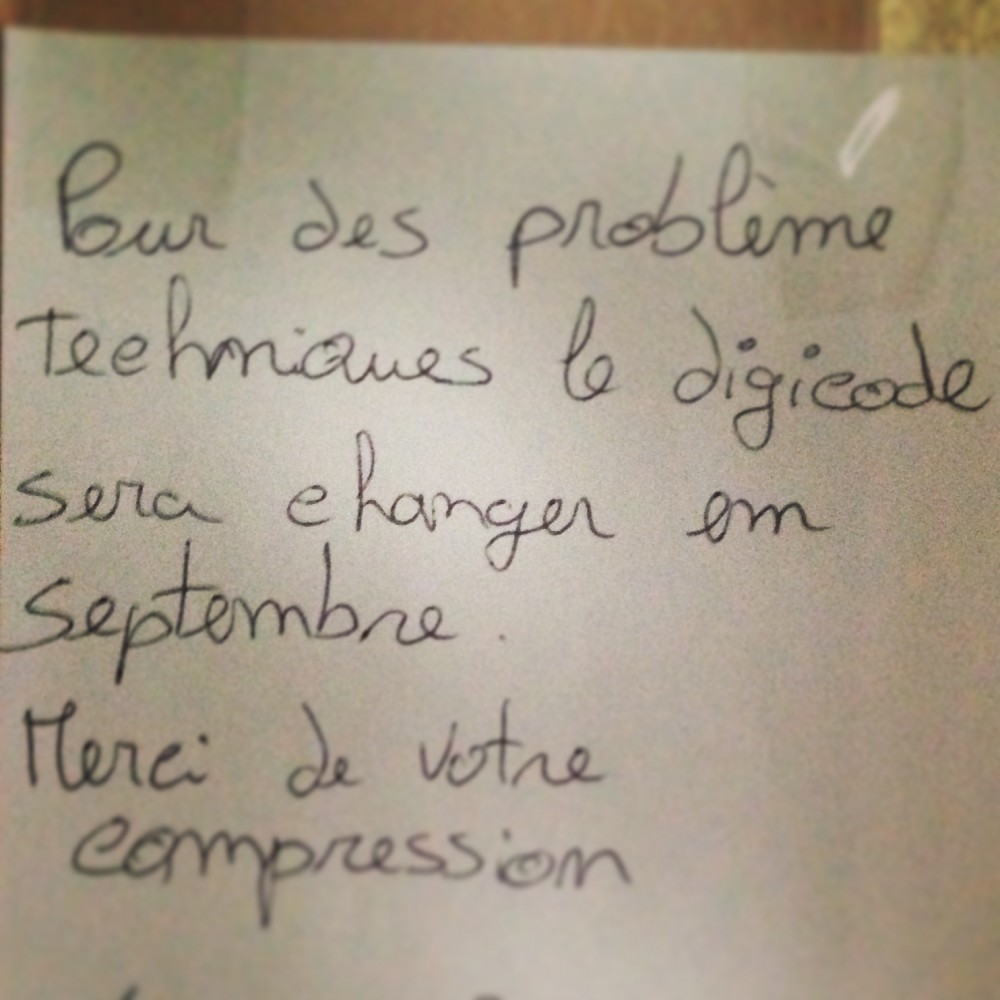 Pour des problème
techniques le digicode
sera changer en
septembre.
Merci de votre
compression